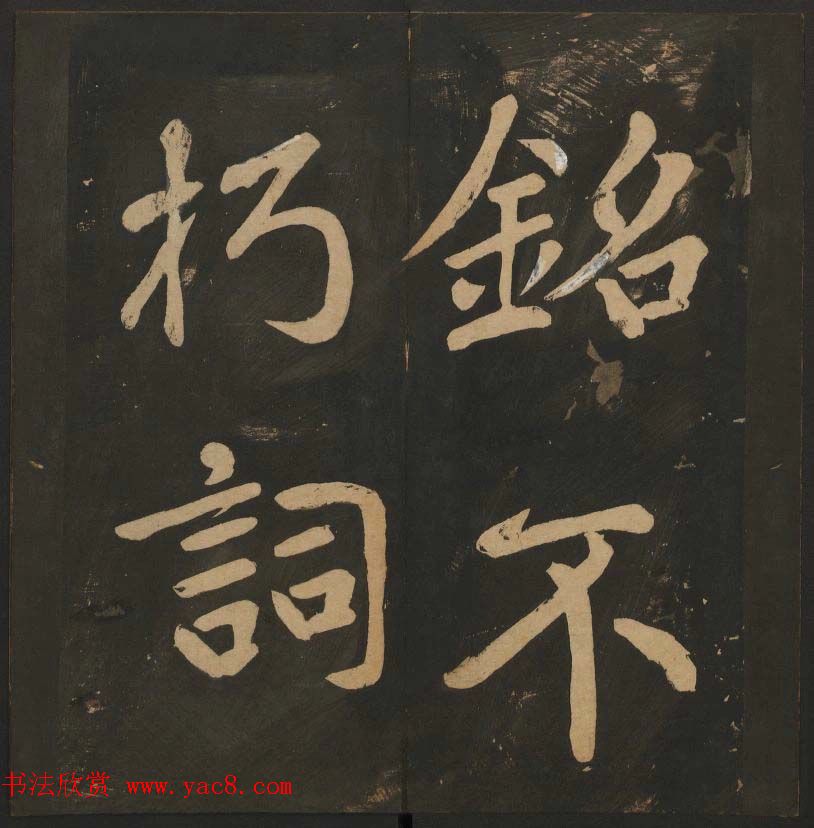 銘不
朽詞
书法欣赏 www.yac8.com